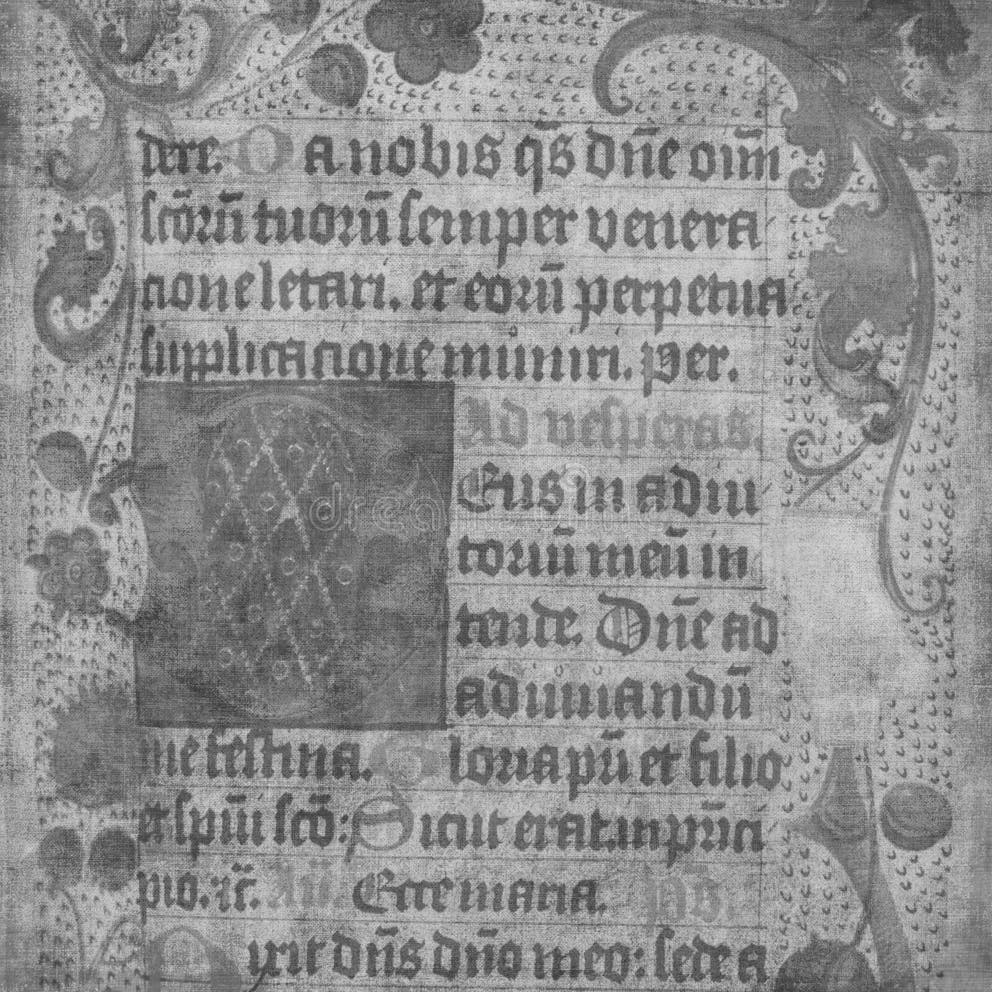 dere. Da nobis qs̄ dn̄e oīm
scōrū tuorū semper venera
cione letari. et eorū perpetua
supplicacione muniri. Per.
Ad vesperas.
Deus in adiu
toriū meū in
tende. Dn̄e ad
adiuuandū
me festina. Gloria pr̄i et filio
et spūi scō: Sicut erat in prīci
pio. ic̄. Añ Ecce maria. ps̄
Dixit dn̄s dn̄o meo: sede a
dreamstime